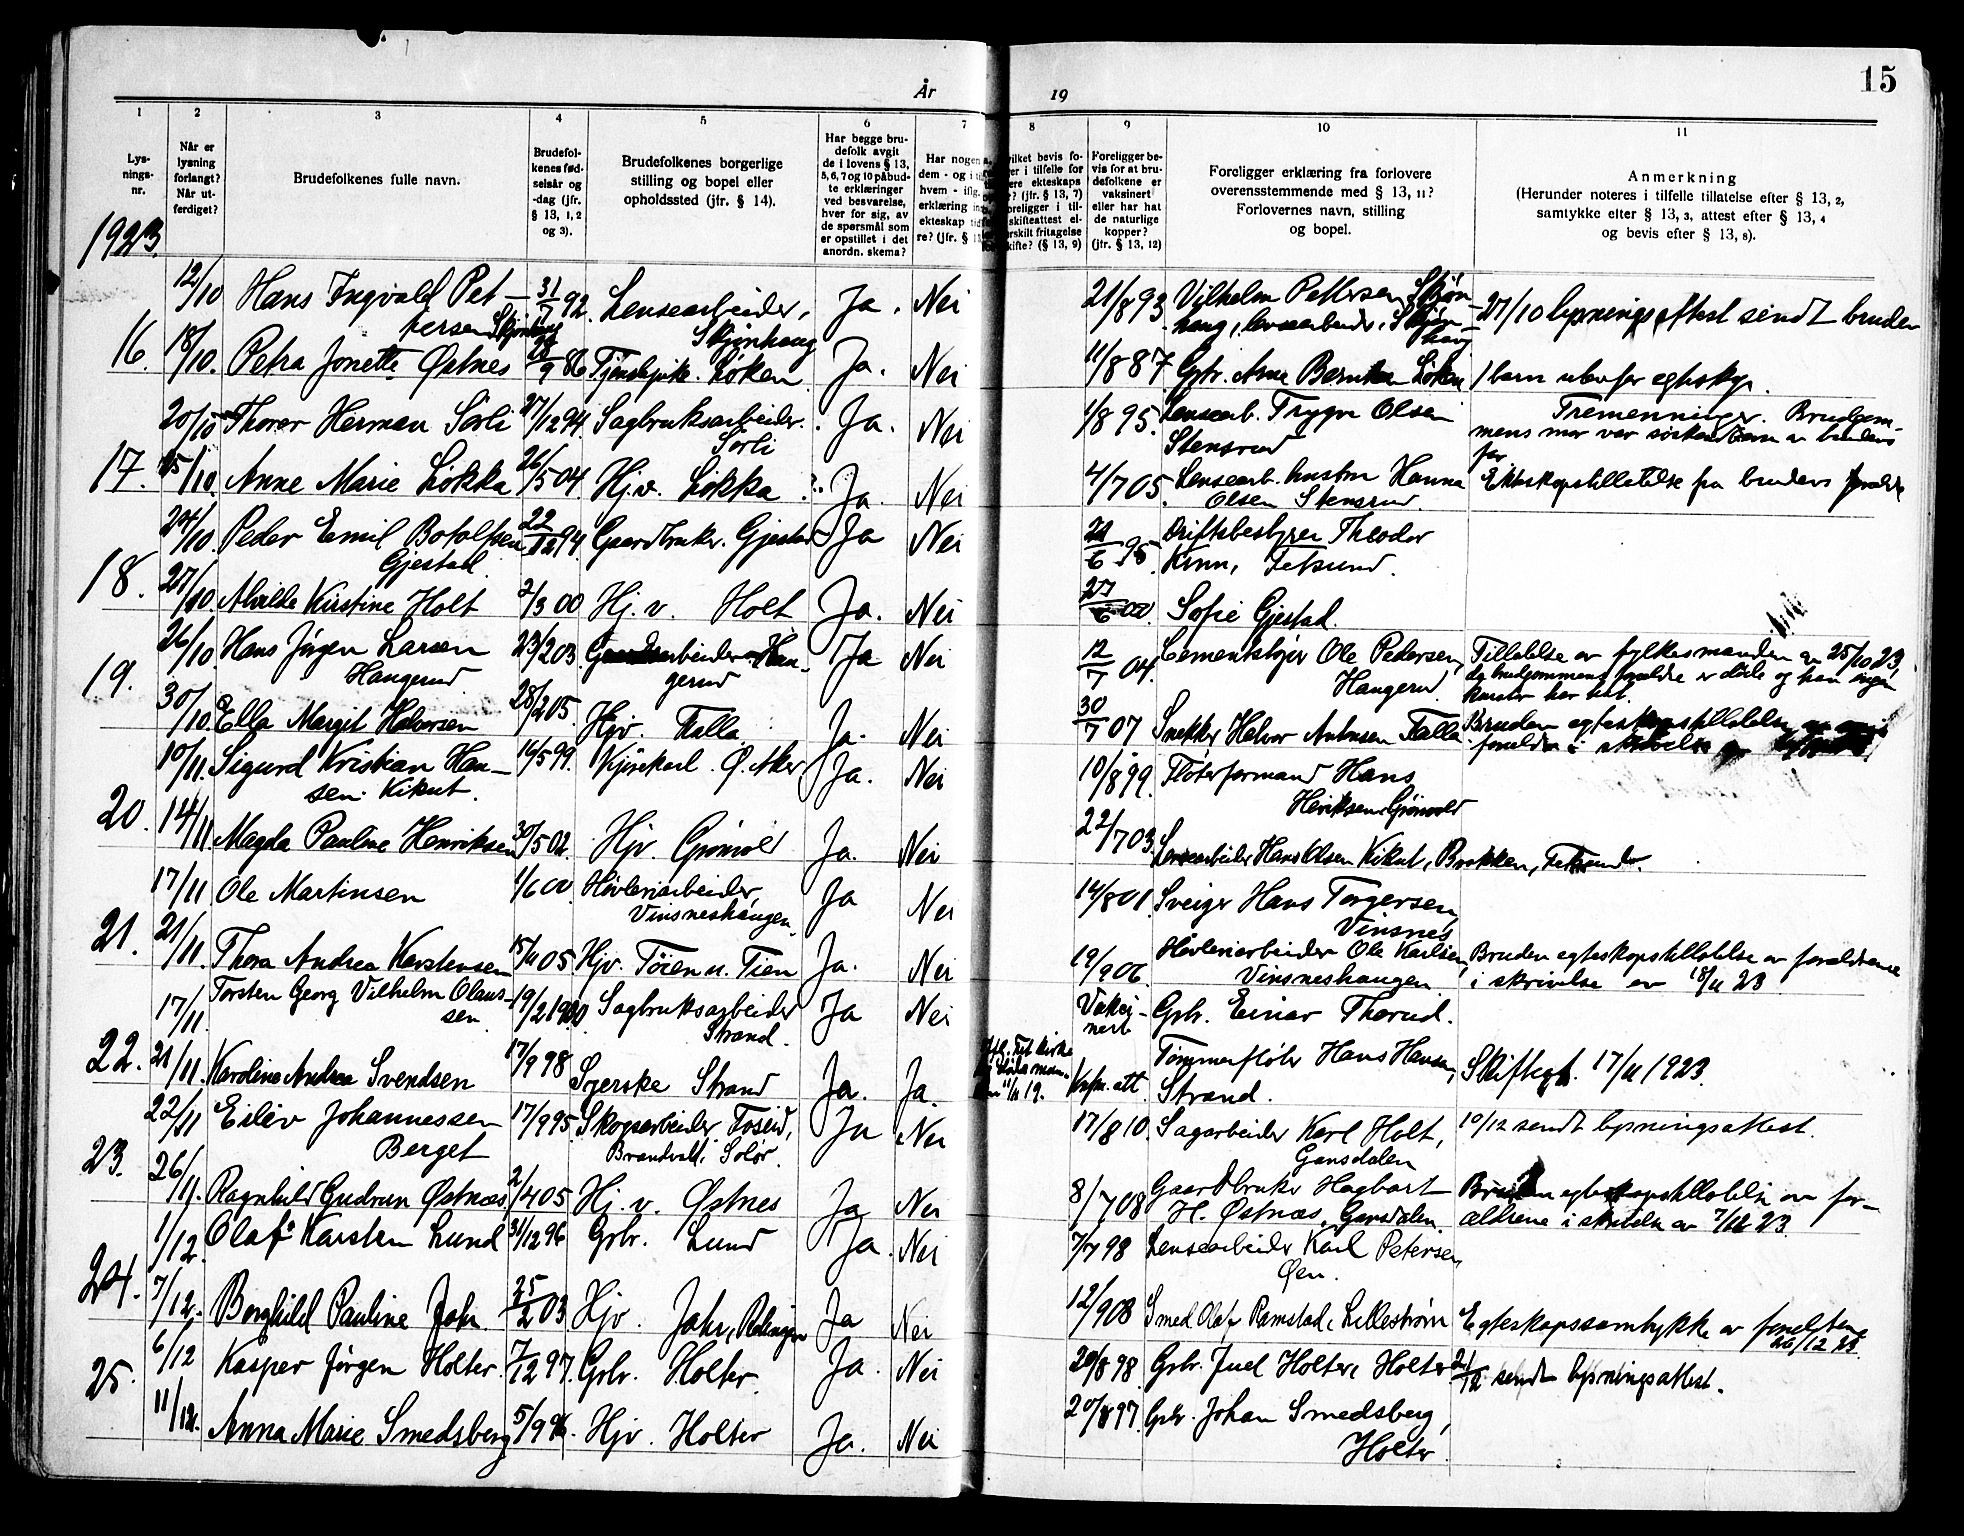 15
År 19
1 2 3 4 5 6 7 8 9 10 11
Lys-
nings-
nr.
Når er
lysning
forlangt?
Når ut-
ferdiget?
Brudefolkenes fulle navn.
Brudefol-
kenes fød-
selsår og
-dag (jfr.
§ 13, 1, 2
og 3).
Brudefolkenes borgerlige
stilling og bopel eller
opholdssted (jfr. § 14).
Har begge bru-
defolk avgit
de i lovens § 13,
5, 6, 7 og 10 påbud-
te erklæringer
ved besvarelse,
hver for sig, av
de spørsmål som
er opstillet i det
anordn. skema?
Har nogen a
dem - og i
hvem - ifl.
erklæring in
ekteskap tid
re? (jfr. §
vilket bevis fo-
er i tilfelle for
ere ekteskaps
? (jfr. § 13, 7)
oreligger i til-
skifteattest el-
erskilt fritagelse
kifte? (§ 13, 9)
Foreligger be-
vis for at bru-
defolkene er
vaksinert
eller har hat
de naturlige
kopper?
(jfr. § 13, 12)
Foreligger erklæring fra forlovere
overensstemmende med § 13, 11?
Forlovernes navn, stilling
og bopel.
Anmerkning
(Herunder noteres i tilfelle tillatelse efter § 13, 2,
samtykke efter § 13, 3, attest efter § 13, 4
og bevis efter § 13, 8).
1923.
12/10 Hans Ingvald Pet- 31/7 92. Lensearbeider, Ja. Nei 21/8 93 Vilhelm Pettersen Skjøn- 27/10 lysningsattest sendt bruden
tersen Skjønhaug Skjønhaug haug, lensearbeider, Skjøn-
haug
16. 18/10. Petra Jonette Østnes /9 86 Tjenestepike. Løken Ja. Nei 11/8 87 Gbr. Arne Berntsen Løken 1 barn utenfor egteskap.
20/10 Thorer Herman Sörli 27/12 94. Sagbruksarbeider. Ja. Nei 1/8 95. Lensearb. Trygve Olsen Tremenninger. Brudgom-
Sörli Stensrud mens mor var søskendebarn av brudens
far.
17. 25/10. Anne Marie Løkka 26/5 04 Hj.v. Løkka Ja. Nei 4/7 05. Lensearb. hustru Hanna Ekteskapstillatelse fra brudens forældre
Olsen Stensrud.
24/10 Peder Emil Botolfsen 22/12 94. Gaardbruker. Gjestad Ja Nei 22/6 95 Driftsbestyrer Theodor
Gjestad Kinn, Fetsund.
18. 27/10. Alvilde Kirstine Holt 2/3 00 Hj. v. Holt Ja. Nei 27/6 00 Sofie Gjestad.
26/10 Hans Jörgen Larsen 23/2 03 arbeider Han- Ja Nei 12/7 04. Cementstøper Ole Pedersen, Tillatelse av fylkesmanden av 25/10 23,
Hangerud gerud Hangerud da brudgommens forældre er døde og han ingen
kurator har hat.
19. 30/10. Ella Margit Halvorsen 28/2 05. Hjv. Falla Ja. Nei 30/7 07 Snekker Halvor Antonsen Falla Bruden egteskapstillatelse av
forældre i skrivelse av
10/11. Sigurd Kristian Han- 16/5 99. Kjörekarl. Ö. Aker Ja. Nei 10/8 99. Fløterformand Hans
sen Kikut. Henriksen, Grönvold
20. 14/11 Magda Pauline Henriksen 30/5 02. Hjv. Grönvold Ja. Nei 22/7 03 Lensearbeider Hans Olsen Kikut, Brakken, Fetsund.
17/11 Ole Martinsen 1/6 00 Høvleriarbeider, Ja Nei 14/8 01. Sveiger Hans Torgersen,
Vinsneshaugen. Vinsnes
21. 21/11. Thora Andrea Karstensen 15/11 05 Hjv. Töien u. Tien Ja. Nei 19/9 06 Høvleriarbeider Ole Karlsen, Bruden egteskapstillatelse av forældrene
Vinsneshaugen i skrivelse av 18/11 23
17/11 Torsten Georg Vilhelm Olaus- 19/2 1900 Sagbruksarbeider Ja Nei Vaksi- Gbr. Einar Thorud.
sen Strand. nert
22. 21/11. Karoline Andrea Svendsen 17/9 98 Syerske Strand Ja. Ja. Fet kirke 11/11 19. Knfm. att Tømmerfløter Hans Hansen, Skifteatt. 17/11 1923.
Strand.
22/11 Eilev Johannessen 17/9 95. Skogsarbeider Foseid, Ja Nei 17/8 10. Sagarbeider Karl Holt, 10/12 sendt lysningsattest.
Berget Brandval i Solør. Gansdalen
23. 26/11. Ragnhild Gudrun Østnæs 2/4 05 Hj. v. Østnes Ja Nei 8/7 08 Gaardbruker Hagbart Bruden egteskapstillatelse av for-
H. Østnæs, Gansdalen ældrene i skrivelse av 7/12 23
1/12. Olaf Karsten Lund 31/12 96 Gbr. Lund Ja. Nei 7/7 98 Lensearbeider Karl Petersen
Øen.
24. 7/12. Borghild Pauline Jahr. 25/2 03 Hjv. Jahr, Rælingen Ja Nei 12/9 08 Smed Olaf Ramstad, Lillestrøm Egteskapssamtykke av forældrene
26/12 23.
6/12 Kasper Jørgen Holter. 7/12 97. Gbr. Holter Ja. Nei 20/8 98 Gbr. Juel Holter, Holter 21/12 sendt lysningsattest.
25. 11/12. Anna Marie Smedsberg 5/9 96. Hjv. Holter Ja. Nei 20/8 97. Gbr. Johan Smedsberg,
Holter.